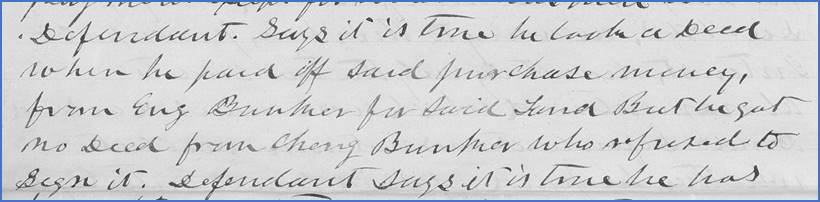 Defendant. Says it is true he took a Deed
when he paid off said purchase money,
from Eng Bunker for said Land But he got
no Deed from Chang Bunker who refused to
sign it. Defendant says it is true he has